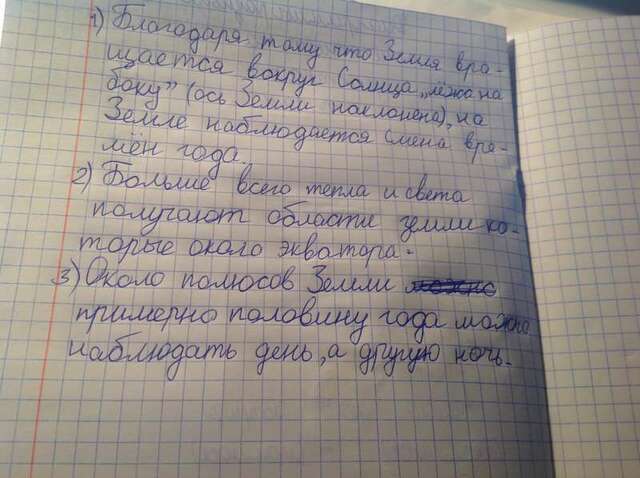 1) Благодаря тому что Земля вра-
щается вокруг Солнца „лёжа на
боку” (ось Земли наклонена), на
Земле наблюдается смена вре-
мён года.
2) Больше всего тепла и света
получают области земли ко-
торые около экватора.
3) Около полюсов Земли
примерно половину года можно
наблюдать день, а другую ночь.